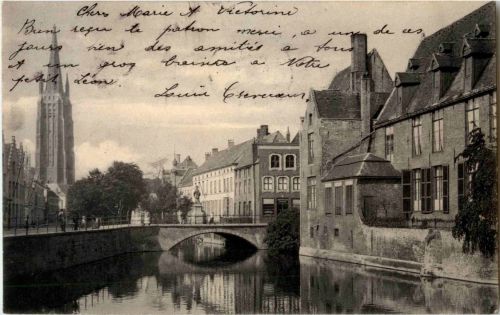 Chers Marie et Victorine
Bien reçu le patron merci, a un de ces
jours rien des amitiés a tous
et un gros à Votre
petit Léon.
Louis